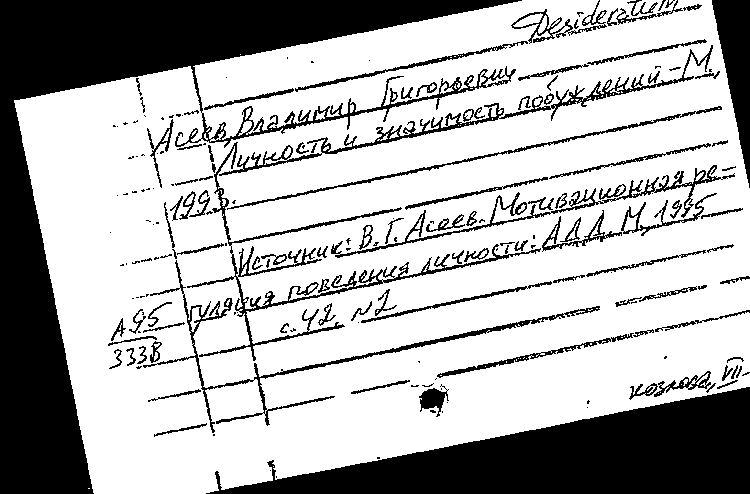 Desideratum
Асеев, Владимир Григорьевич
Личность и значимость побуждений. - М.,
1993.
Источник: В. Г. Асеев. Мотивационная ре-
гуляция поведения личности: АДД. М., 1995
с. 42, №2
А95
333В
козлова, VII